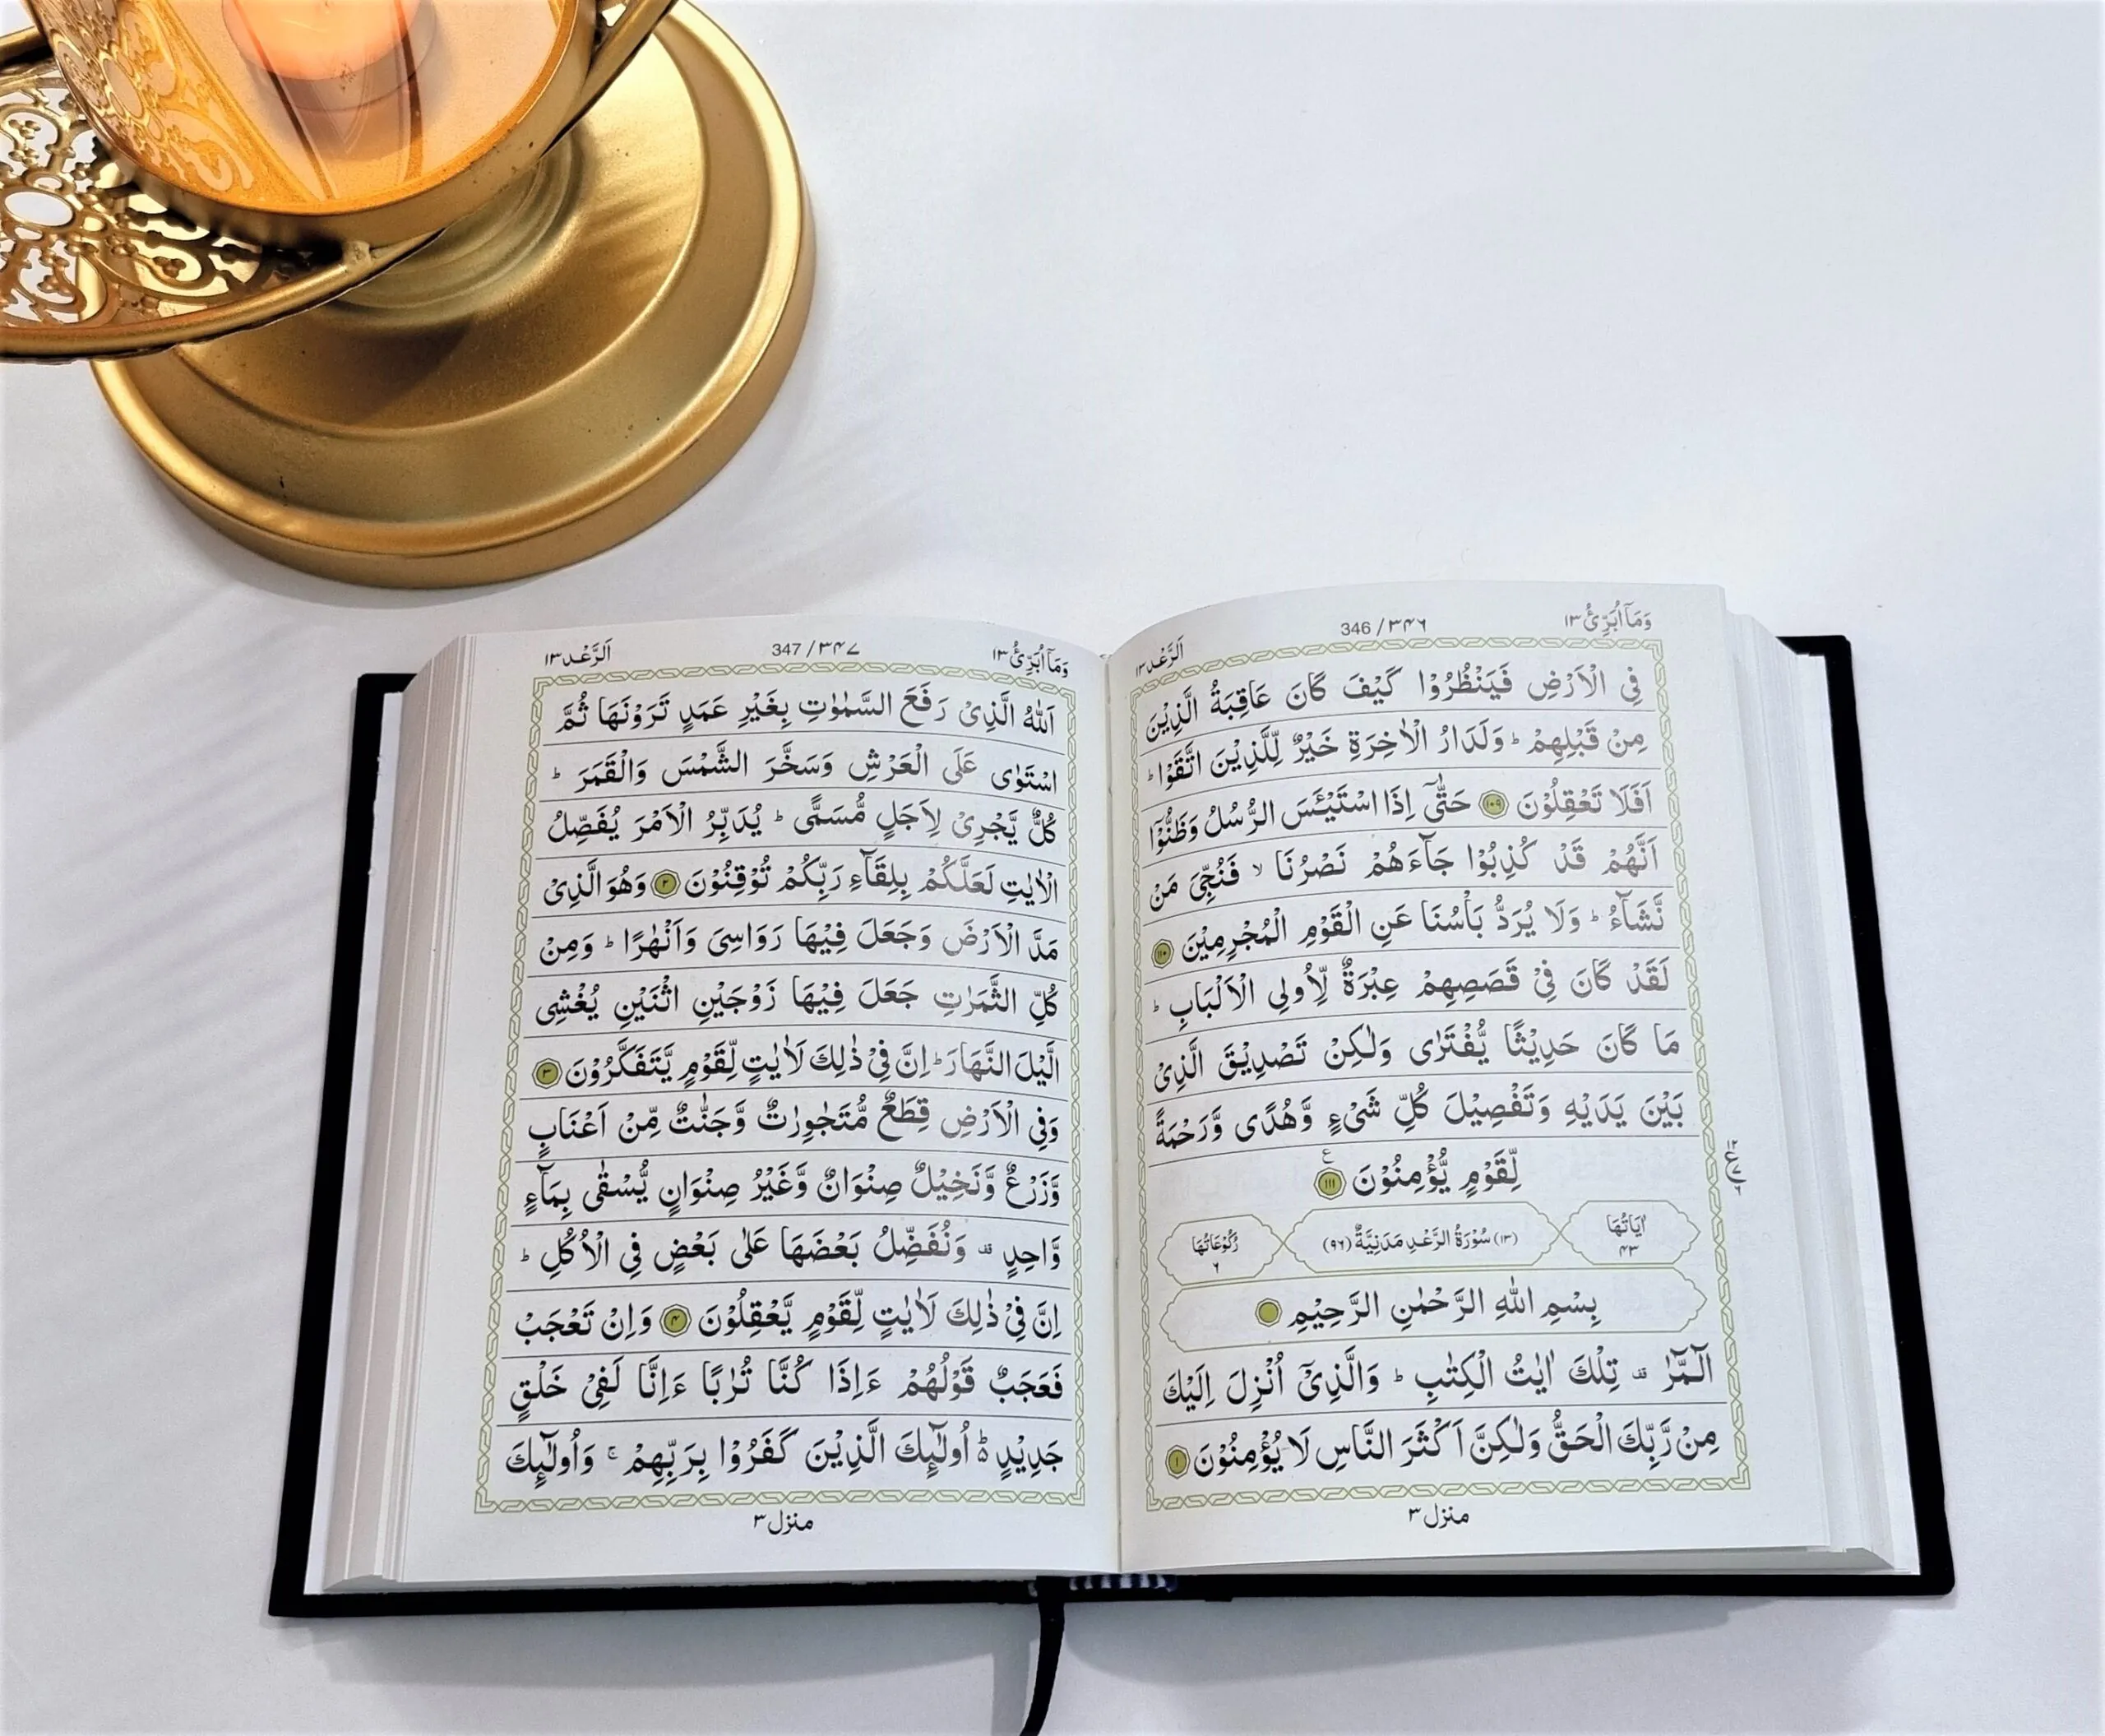 وَمَآ اُبَرِّئُ ١٣
346 / ٣۴٦
اَلرَّعْد ١٣
فِي الْاَرْضِ فَيَنْظُرُوْا كَيْفَ كَانَ عَاقِبَةُ الَّذِيْنَ
مِنْ قَبْلِهِمْ ؕ وَلَدَارُ الْاٰخِرَةِ خَيْرٌ لِّلَّذِيْنَ اتَّقَوْا ؕ
اَفَلَا تَعْقِلُوْنَ ﴿١٠٩﴾ حَتّٰىٓ اِذَا اسْتَيْـَٔسَ الرُّسُلُ وَظَنُّوْٓا
اَنَّهُمْ قَدْ كُذِبُوْا جَآءَهُمْ نَصْرُنَا ۙ فَنُجِّيَ مَنْ
نَّشَآءُ ؕ وَلَا يُرَدُّ بَاْسُنَا عَنِ الْقَوْمِ الْمُجْرِمِيْنَ ﴿١١٠﴾
لَقَدْ كَانَ فِيْ قَصَصِهِمْ عِبْرَةٌ لِّاُولِي الْاَلْبَابِ ؕ
مَا كَانَ حَدِيْثًا يُّفْتَرٰى وَلٰكِنْ تَصْدِيْقَ الَّذِيْ
بَيْنَ يَدَيْهِ وَتَفْصِيْلَ كُلِّ شَيْءٍ وَّهُدًى وَّرَحْمَةً
لِّقَوْمٍ يُّؤْمِنُوْنَ ﴿١١١﴾ ع
اٰيَاتُهَا ۴٣
(١٣) سُوْرَةُ الرَّعْدِ مَدَنِيَّةٌ (٩٦)
رُكُوْعَاتُهَا ٦
بِسْمِ اللّٰهِ الرَّحْمٰنِ الرَّحِيْمِ
الٓمّٓرٰ ۟ تِلْكَ اٰيٰتُ الْكِتٰبِ ؕ وَالَّذِيْٓ اُنْزِلَ اِلَيْكَ
مِنْ رَّبِّكَ الْحَقُّ وَلٰكِنَّ اَكْثَرَ النَّاسِ لَا يُؤْمِنُوْنَ ﴿١﴾
منزل ٣
وَمَآ اُبَرِّئُ ١٣
347 / ٣۴٧
اَلرَّعْد ١٣
اَللّٰهُ الَّذِيْ رَفَعَ السَّمٰوٰتِ بِغَيْرِ عَمَدٍ تَرَوْنَهَا ثُمَّ
اسْتَوٰى عَلَى الْعَرْشِ وَسَخَّرَ الشَّمْسَ وَالْقَمَرَ ؕ
كُلٌّ يَّجْرِيْ لِاَجَلٍ مُّسَمًّى ؕ يُدَبِّرُ الْاَمْرَ يُفَصِّلُ
الْاٰيٰتِ لَعَلَّكُمْ بِلِقَآءِ رَبِّكُمْ تُوْقِنُوْنَ ﴿٢﴾ وَهُوَ الَّذِيْ
مَدَّ الْاَرْضَ وَجَعَلَ فِيْهَا رَوَاسِيَ وَاَنْهٰرًا ؕ وَمِنْ
كُلِّ الثَّمَرٰتِ جَعَلَ فِيْهَا زَوْجَيْنِ اثْنَيْنِ يُغْشِي
الَّيْلَ النَّهَارَ ؕ اِنَّ فِيْ ذٰلِكَ لَاٰيٰتٍ لِّقَوْمٍ يَّتَفَكَّرُوْنَ ﴿٣﴾
وَفِي الْاَرْضِ قِطَعٌ مُّتَجٰوِرٰتٌ وَّجَنّٰتٌ مِّنْ اَعْنَابٍ
وَّزَرْعٌ وَّنَخِيْلٌ صِنْوَانٌ وَّغَيْرُ صِنْوَانٍ يُّسْقٰى بِمَآءٍ
وَّاحِدٍ ۟ وَنُفَضِّلُ بَعْضَهَا عَلٰى بَعْضٍ فِي الْاُكُلِ ؕ
اِنَّ فِيْ ذٰلِكَ لَاٰيٰتٍ لِّقَوْمٍ يَّعْقِلُوْنَ ﴿۴﴾ وَاِنْ تَعْجَبْ
فَعَجَبٌ قَوْلُهُمْ ءَاِذَا كُنَّا تُرٰبًا ءَاِنَّا لَفِيْ خَلْقٍ
جَدِيْدٍ ۬ؕ اُولٰٓئِكَ الَّذِيْنَ كَفَرُوْا بِرَبِّهِمْ ۚ وَاُولٰٓئِكَ
منزل ٣